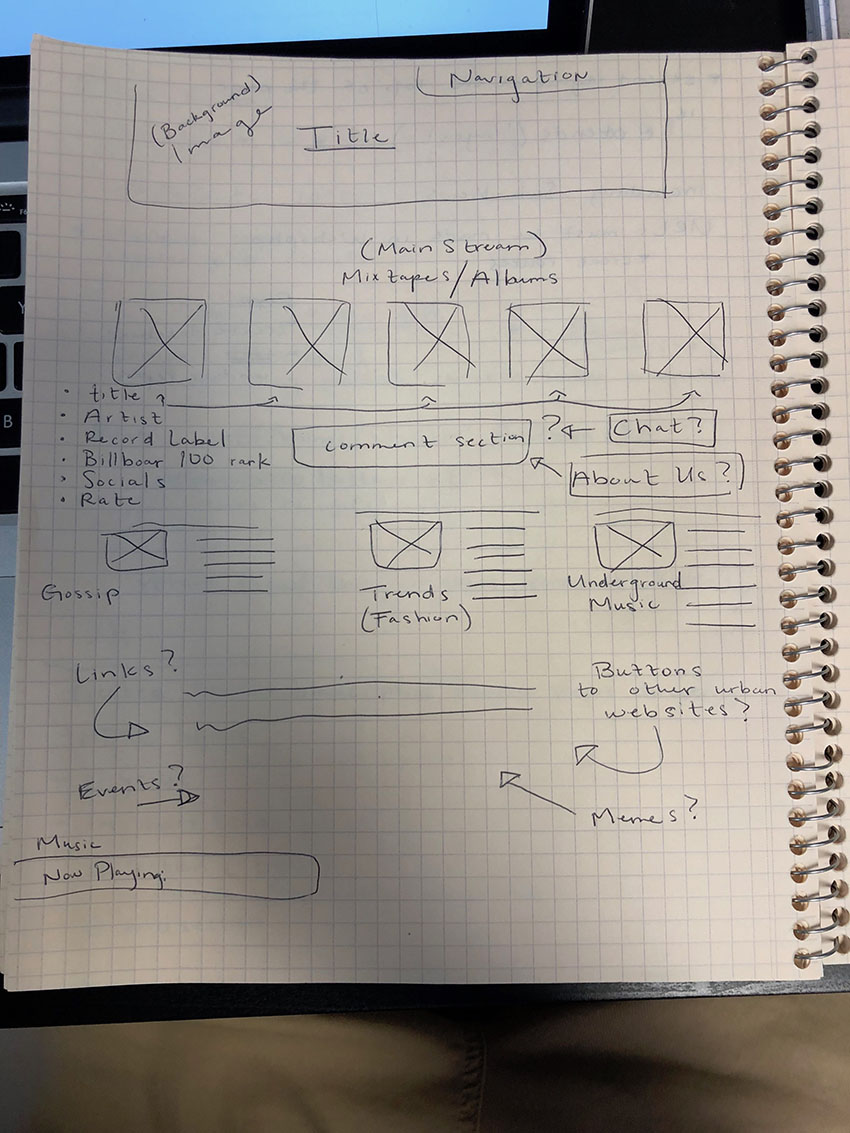 Navigation
(Background)
Image
Title
(Main Stream)
Mixtapes/Albums
• title
• Artist
• Record Label
• Billboar 100 rank
• Socials
• Rate
comment section ?
Chat?
About Us?
Gossip
Trends
(Fashion)
Underground
Music
Links?
Buttons
to other urban
websites?
Events?
Memes?
Music
Now Playing: